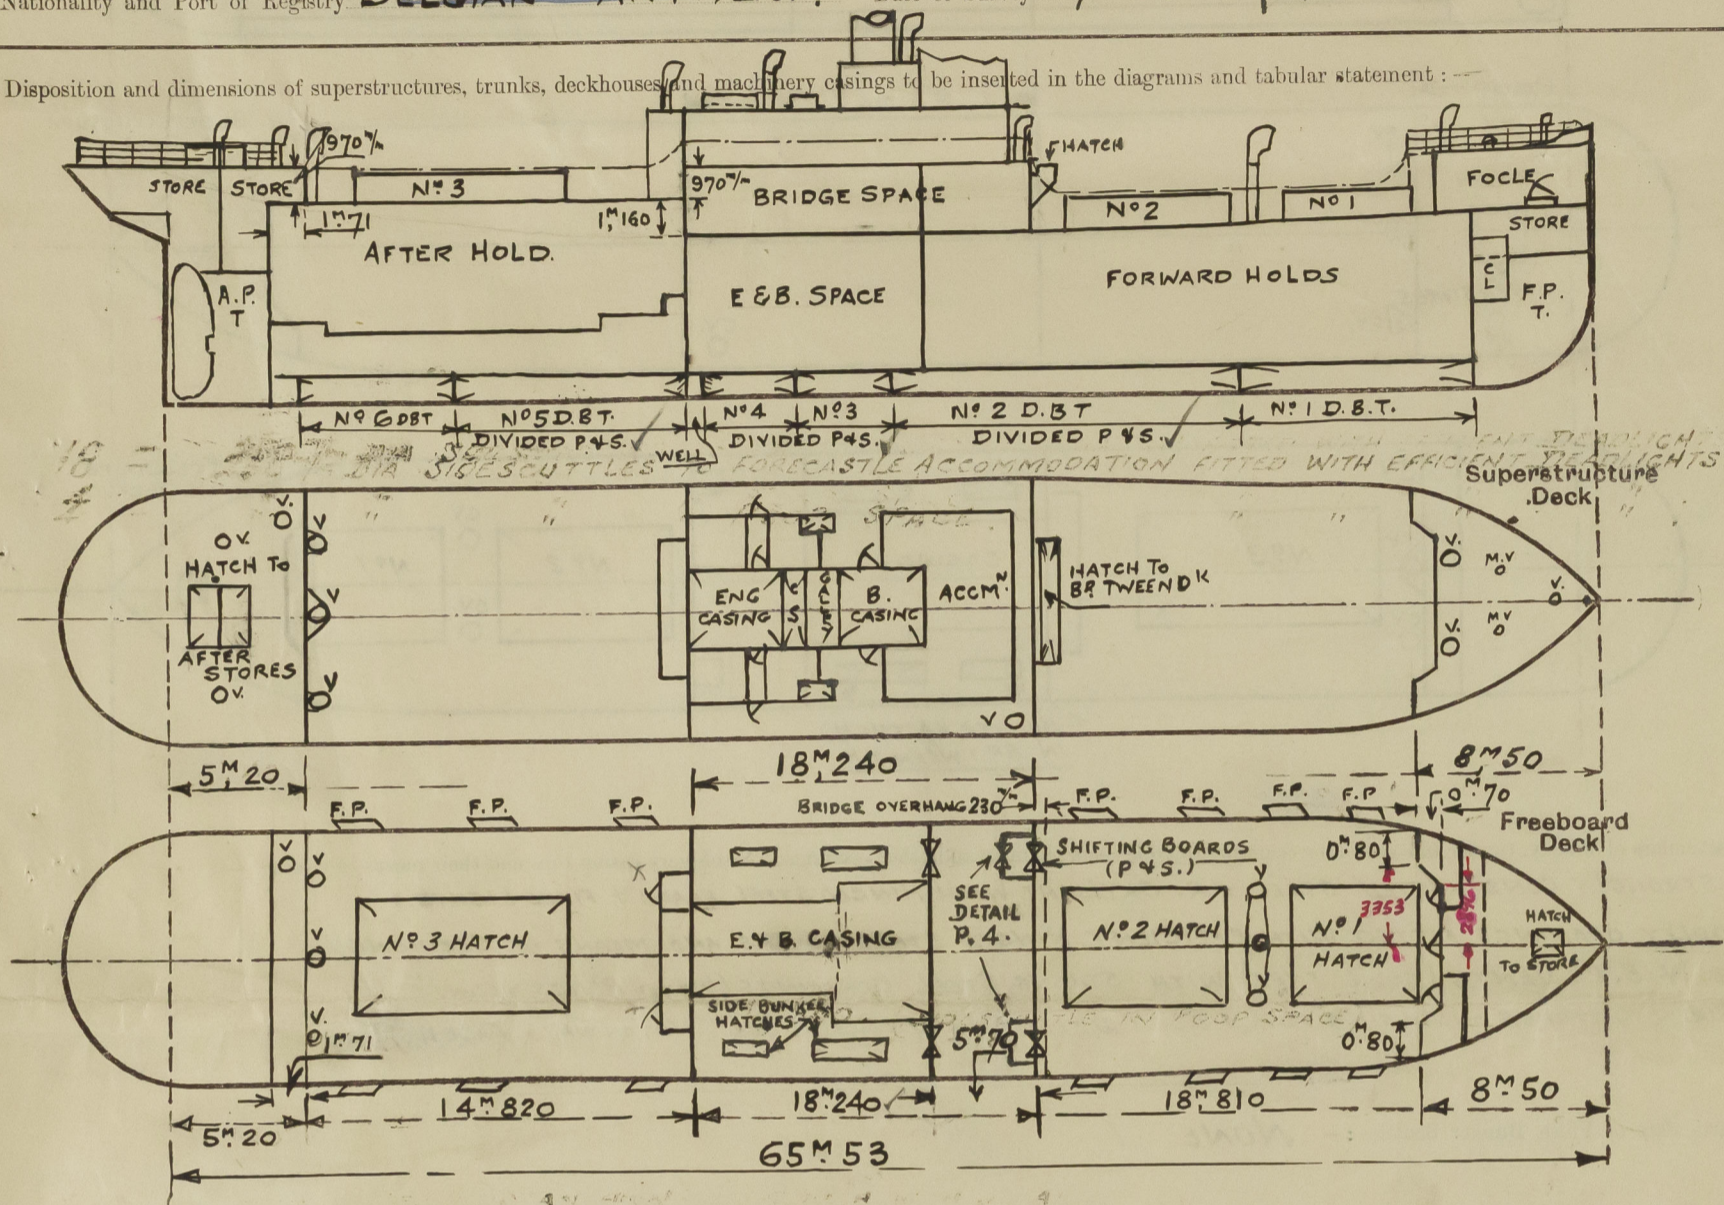 Nationality and Port of Registry
Disposition and dimensions of superstructures, trunks, deckhouses and machinery casings to be inserted in the diagrams and tabular statement :—
970 m/m
HATCH
STORE STORE
Nº 3
970 m/m
BRIDGE SPACE
Nº 2
Nº 1
FOCLE
1ᴹ 71
1ᴹ, 160
STORE
AFTER HOLD.
E & B. SPACE
FORWARD HOLDS
A.P.
T
C
L
F.P.
T.
Nº 6 DBT
Nº 5 D.B.T.
DIVIDED P & S.
WELL
Nº 4
Nº 3
DIVIDED P & S.
Nº 2 D.B T
DIVIDED P & S.
Nº 1 D.B.T.
18 =
DIA SIDESCUTTLES TO FORECASTLE ACCOMMODATION FITTED WITH EFFICIENT DEADLIGHTS
" " SPACE " " "
Superstructure
Deck
V.
V
V.
HATCH TO
AFTER
STORES
V.
V
V
ENG
CASING
C
S
GALLEY
B.
CASING
ACCMᴺ
V
HATCH TO
BR. TWEEN Dᴷ
V.
M.V
V.
M V
V.
5ᴹ 20
18ᴹ, 240
8ᴹ 50
BRIDGE OVERHANG 230 m/m
0ᴹ 70
F.P.
F.P.
F.P.
F.P.
F.P.
F.P.
F.P
Freeboard
Deck
V.
V.
V.
V.
SHIFTING BOARDS
(P & S.)
0ᴹ 80
SEE
DETAIL
P. 4.
Nº 3 HATCH
E. & B. CASING
V
Nº 2 HATCH
V
Nº 1
HATCH
3353
2896
HATCH
TO STORE
SIDE BUNKER
HATCHES
IN POOP SPACE
1ᴹ 71
5ᴹ 70
0ᴹ 80
5ᴹ 20
14ᴹ 820
18ᴹ 240
18ᴹ 810
8ᴹ 50
65ᴹ 53